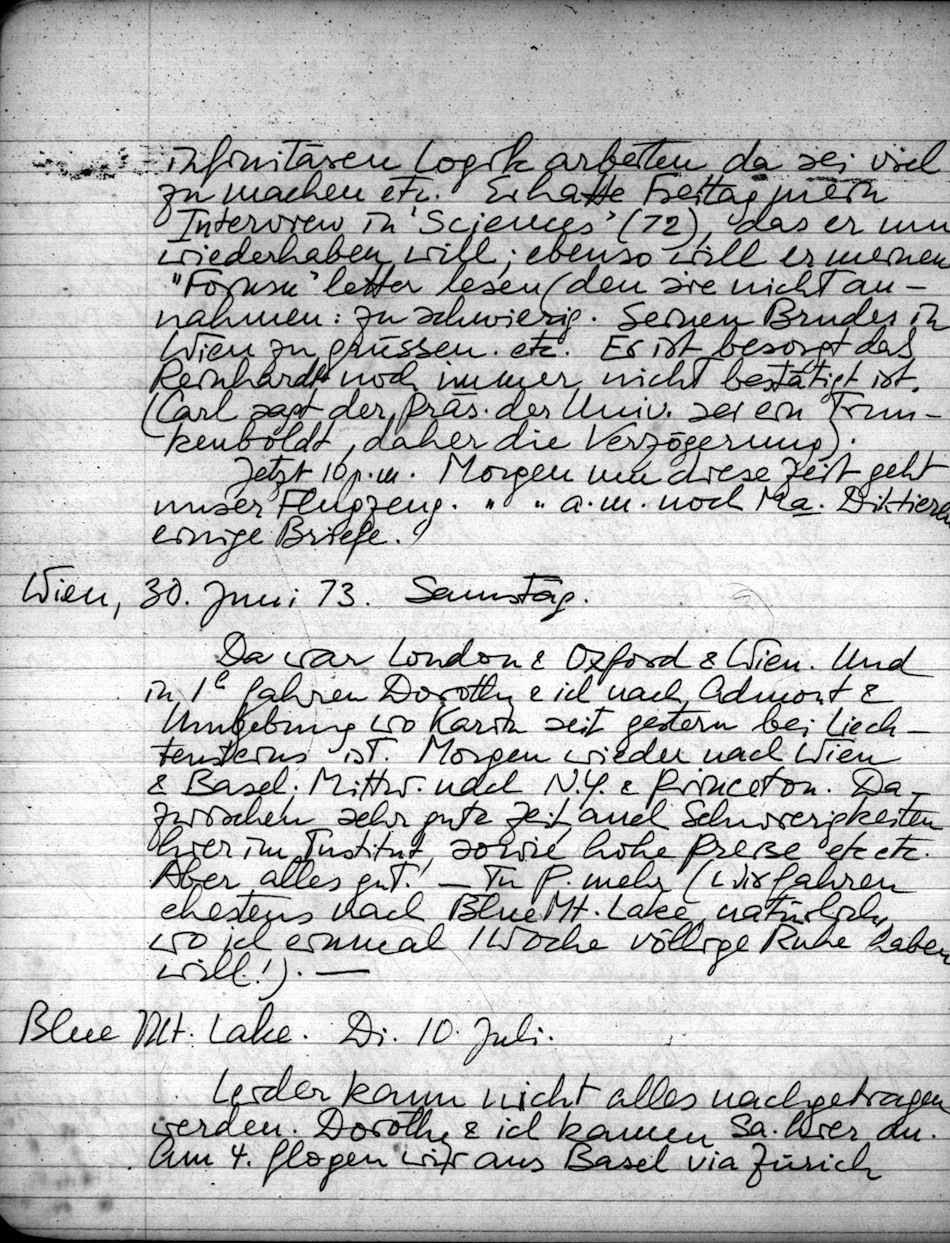 infinitären Logik arbeiten da sei viel
zu machen etc. Er hatte Freitag mein
Interview in 'Sciences' (72), das er nun
wiederhaben will; ebenso will er meinen
"Forum" letter lesen (den sie nicht an-
nahmen: zu schwierig. Seinen Bruder in
Wien zu grüssen. etc. Er ist besorgt das
Reinhardt noch immer nicht bestätigt ist.
(Carl sagt der Präs. der Univ. sei ein Trun-
kenboldt, daher die Verzögerung).
Jetzt 10 p.m. Morgen um diese Zeit geht
unser Flugzeug. " " a.m. noch Ma. Diktiere
einige Briefe.
Wien, 30. Juni 73. Samstag.
Da war London & Oxford & Wien. Und
in 1h fahren Dorothy & ich nach Admont &
Umgebung wo Karin seit gestern bei Liech-
tensteins ist. Morgen wieder nach Wien
& Basel. Mittw. nach N.Y. & Princeton. Da-
zwischen sehr gute Zeit, auch Schwierigkeiten
hier im Institut, sowie hohe Preise etc etc.
Aber alles gut! — In P. mehr (wir fahren
ehestens nach Blue Mt. Lake, natürlich,
wo ich einmal 1 Woche völlige Ruhe haben
will!). —
Blue Mt. Lake. Di. 10. Juli.
Leider kann nicht alles nachgetragen
werden. Dorothy & ich kamen Sa. hier an.
Am 4. flogen wir aus Basel via Zürich